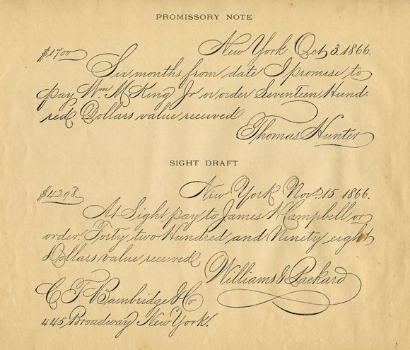 PROMISSORY NOTE
$1700 New York Oct 3. 1866.
Six months from date I promise to
pay Wm M King Jr or order Seventeen Hund-
red Dollars value received
Thomas Hunter
SIGHT DRAFT
$4298 New York Nov. 15 1866.
At Sight pay to James W Campbell or
order Forty two Hundred and Ninety eight
Dollars value received
Williams & Packard
C T Bainbridge & Co
445 Broadway New York.